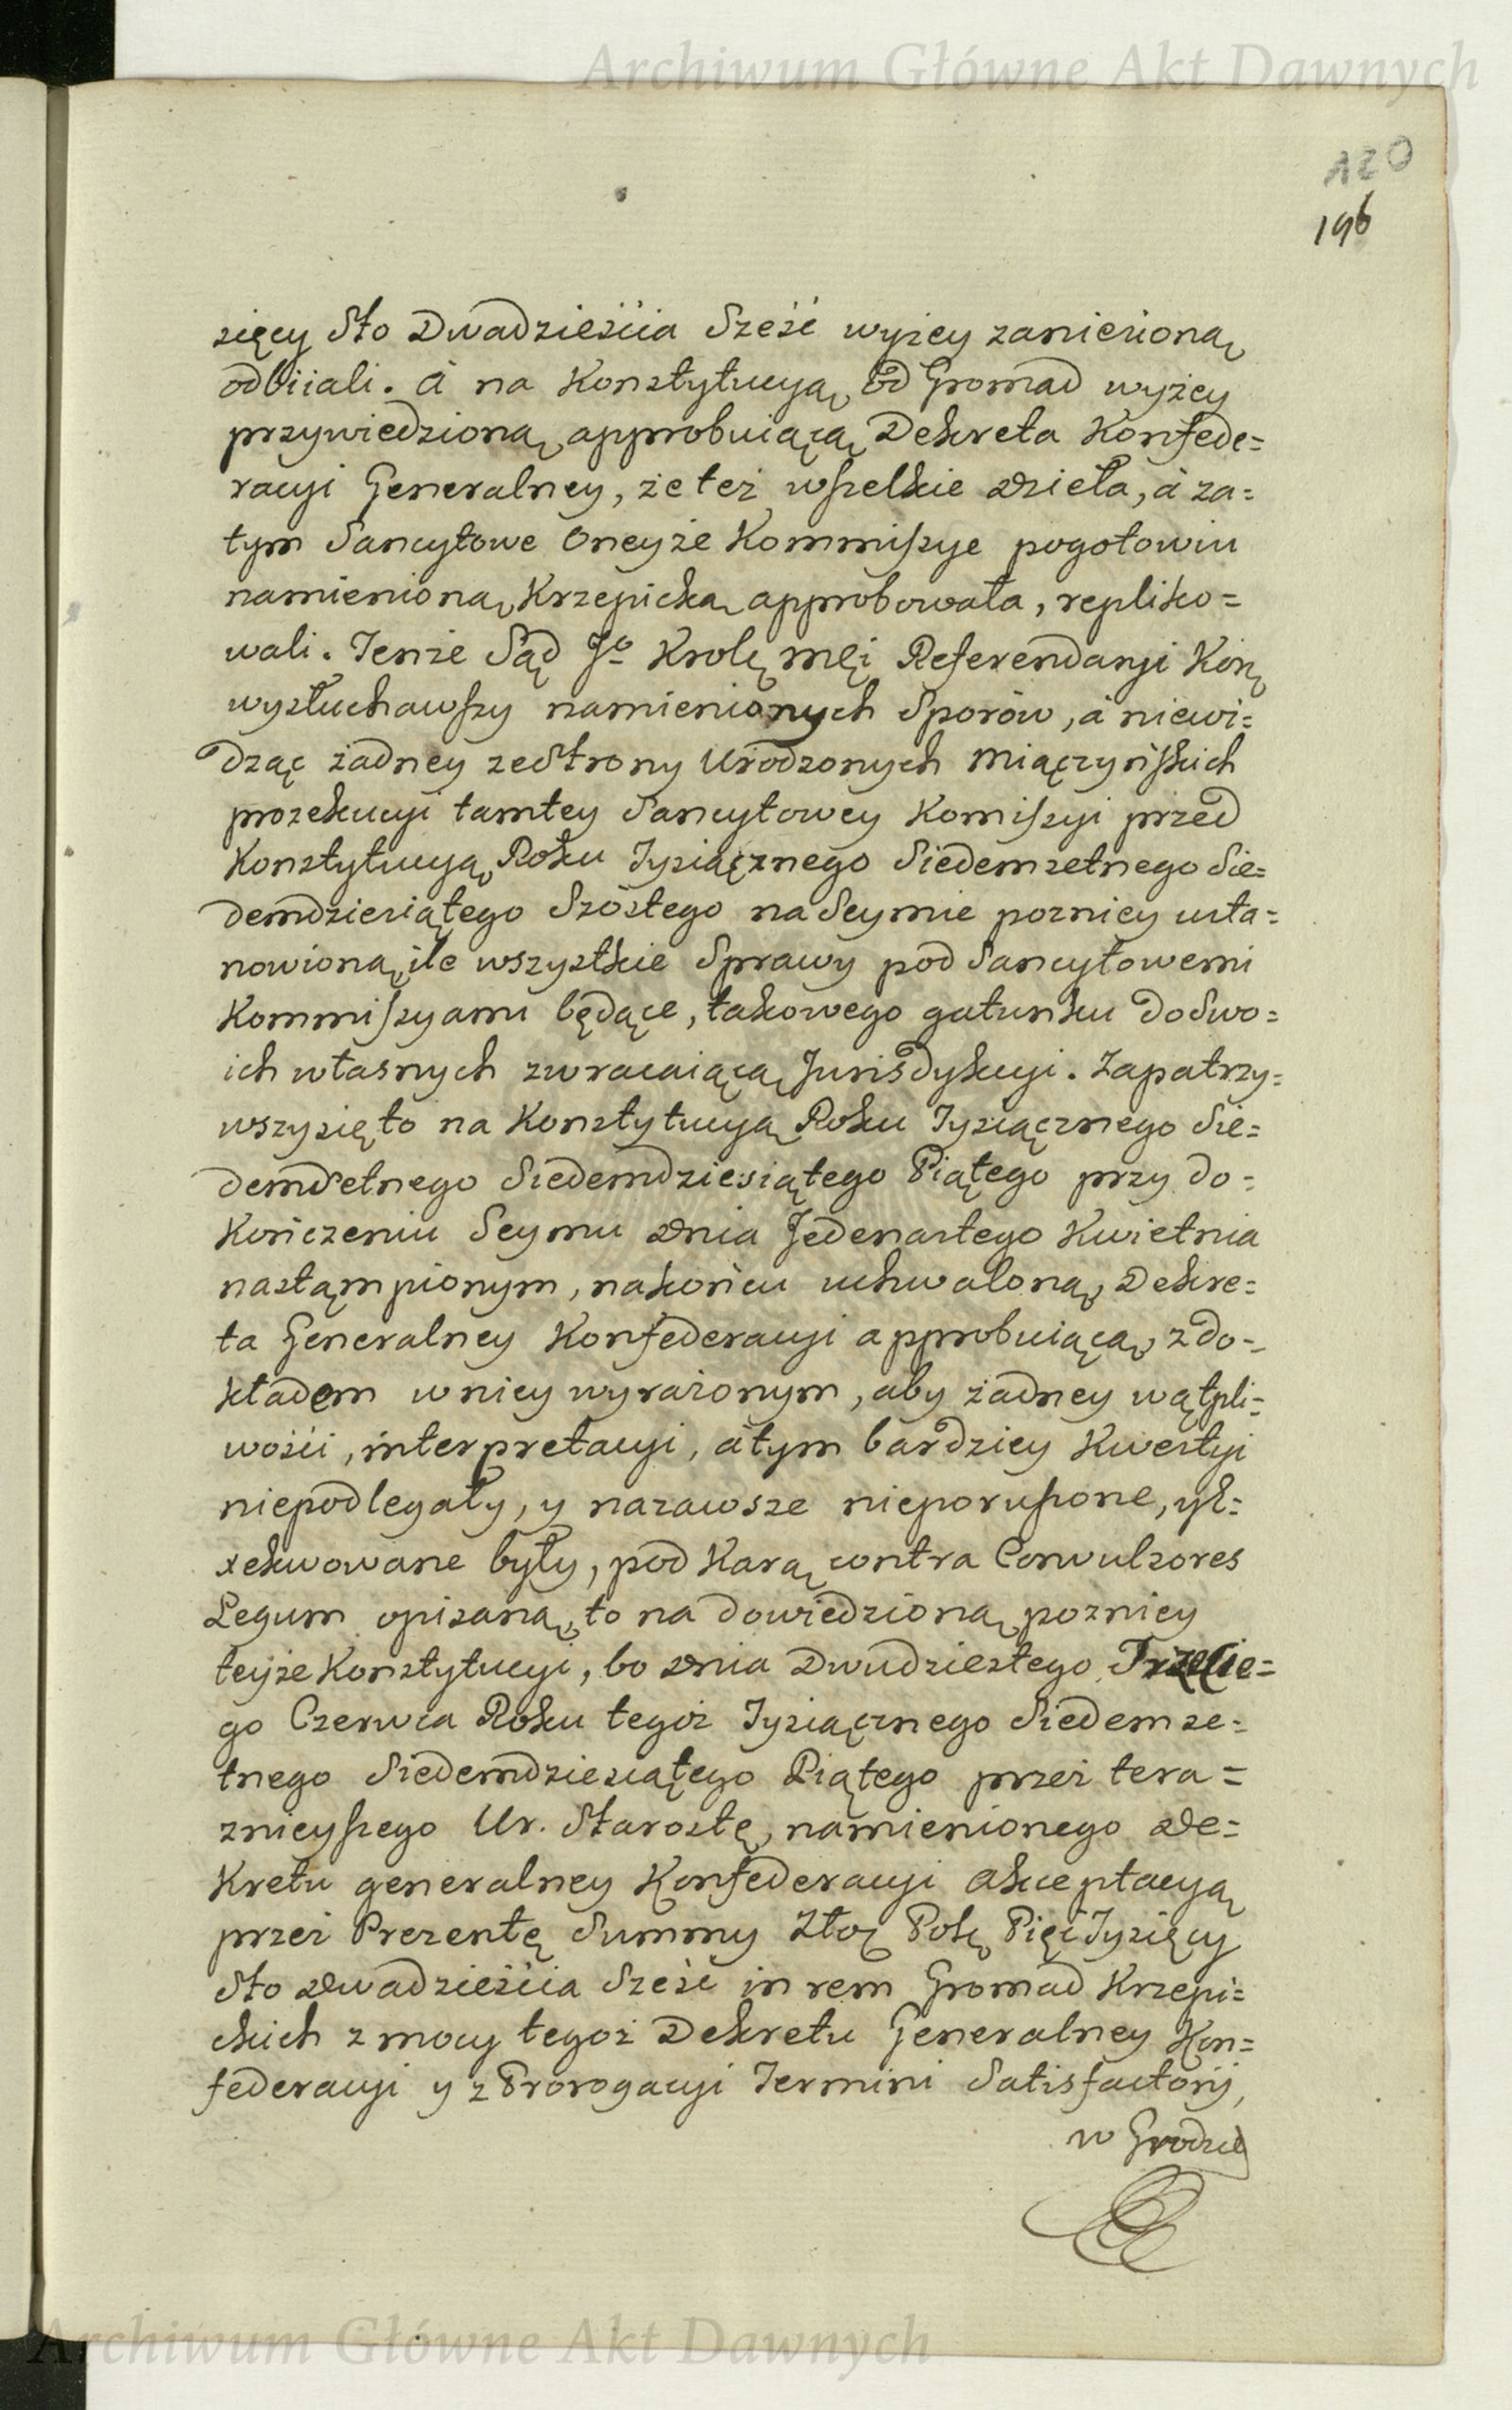 Archiwum Główne Akt Dawnych
120
196
sięcy Sto Dwadzieścia Sześć wyżey zanieśioną
odbiiali. à na Konstytucyą od Gromad wyżey
przywiedzioną approbuiącą Dekreta Konfede=
racyi Generalney, że też wszelkie dzieła, à za=
tym Sancytowe Oneyże Kommiszye pogotowiu
namienioną Krzepicką approbowała, repliko=
wali. Tenże Sąd Jº Krolę męi Referendaryi Korę
wysłuchawszy namienionych Sporów, à niewi=
dząc żadney ze Strony Urodzonych Miączyńskich
prozekucyi tamtey Sancytowey Komiszyi przed
Konstytucyą Roku Tysiącznego Siedemsetnego Sie=
demdziesiątego Szóstego na Seymie pozniey usta=
nowioną, ile wszystkie Sprawy pod Sancytowemi
Kommiszyami będące, takowego gatunku do Swo=
ich własnych zwracaiącą Jurisdykcyi. Zapatrzy=
wszy się to na Konstytucyą Roku Tysiącznego Sie=
demSetnego Siedemdziesiątego Piątego przy do=
Kończeniu Seymu dnia Jedenastego Kwietnia
nastąmpionym, nakońcu uchwaloną, Dekre=
ta Generalney Konfederacyi approbuiącą, z do=
kładem w niey wyrażonym, aby żadney wątpli=
wości, interpretacyi, à tym bardziey Kwestyi
niepodlegały, y nazawsze nieporuszone, yE=
xekwowane były, pod Karą contra Convulsores
Legum opisaną, to na dowiedzioną pozniey
teyże Konstytucyi, bo dnia Dwudziestego Trzecie=
go Czerwca Roku tegoż Tysiącznego Siedemse=
tnego Siedemdziesiątego Piątego przez tera=
znieyszego Ur. Starostę, namienionego De=
Kretu generalney Konfederacyi akceptacyą
przez Prezentę Summy Złoę Polę Pięć Tysięcy
Sto dwadzieścia Sześć in rem Gromad Krzepi=
ckich z mocy tegoż Dekretu Generalney Kon=
federacyi y z Prorogacyi Termini Satisfactorij,
w Grodzie
Archiwum Główne Akt Dawnych